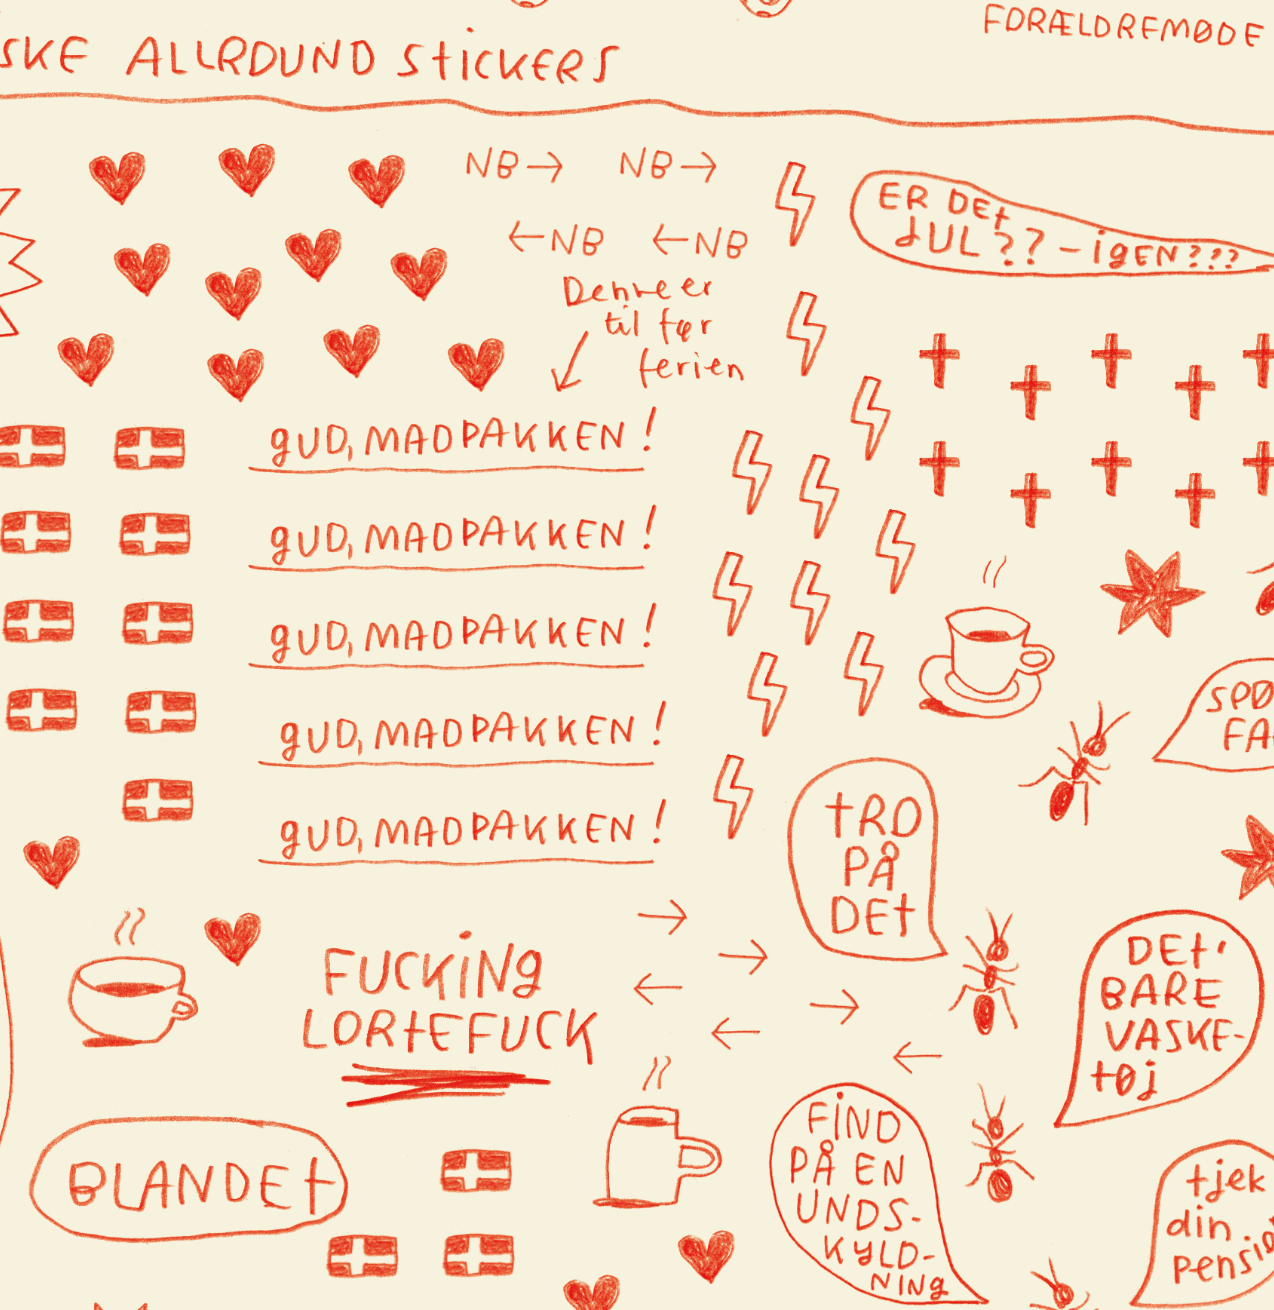 SKE ALLROUND STICKERS
FORÆLDREMØDE
NB→ NB→
←NB ←NB
ER DET
JUL?? - IGEN???
Denne er
til før
ferien
GUD, MADPAKKEN!
GUD, MADPAKKEN!
GUD, MADPAKKEN!
GUD, MADPAKKEN!
GUD, MADPAKKEN!
SPØ
FA
TRO
PÅ
DET
FUCKING
LORTEFUCK
DET'
BARE
VASKE-
TØJ
BLANDET
FIND
PÅ EN
UNDS-
KYLD-
NING
tjek
din
pensio